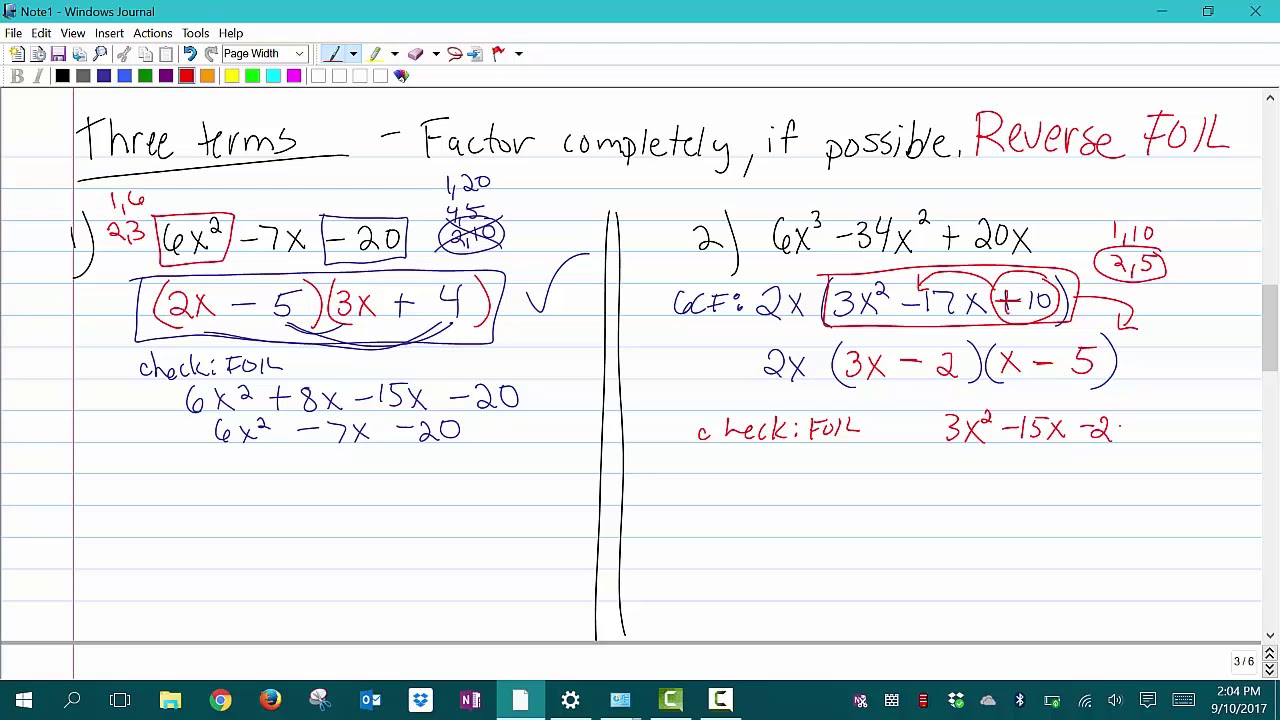 Note1 - Windows Journal
File Edit View Insert Actions Tools Help
Page Width
B I
Three terms - Factor completely, if possible. Reverse FOIL
1,20
1,6
4,5
2,3
2,10
1) 6x² -7x -20
(2x - 5)(3x + 4)
check: FOIL
6x² +8x -15x -20
6x² -7x -20
2) 6x³ -34x² + 20x
1,10
2,5
GCF: 2x (3x² -17x +10)
2x (3x - 2)(x - 5)
check: FOIL 3x² -15x -2
3 / 6
2:04 PM
9/10/2017